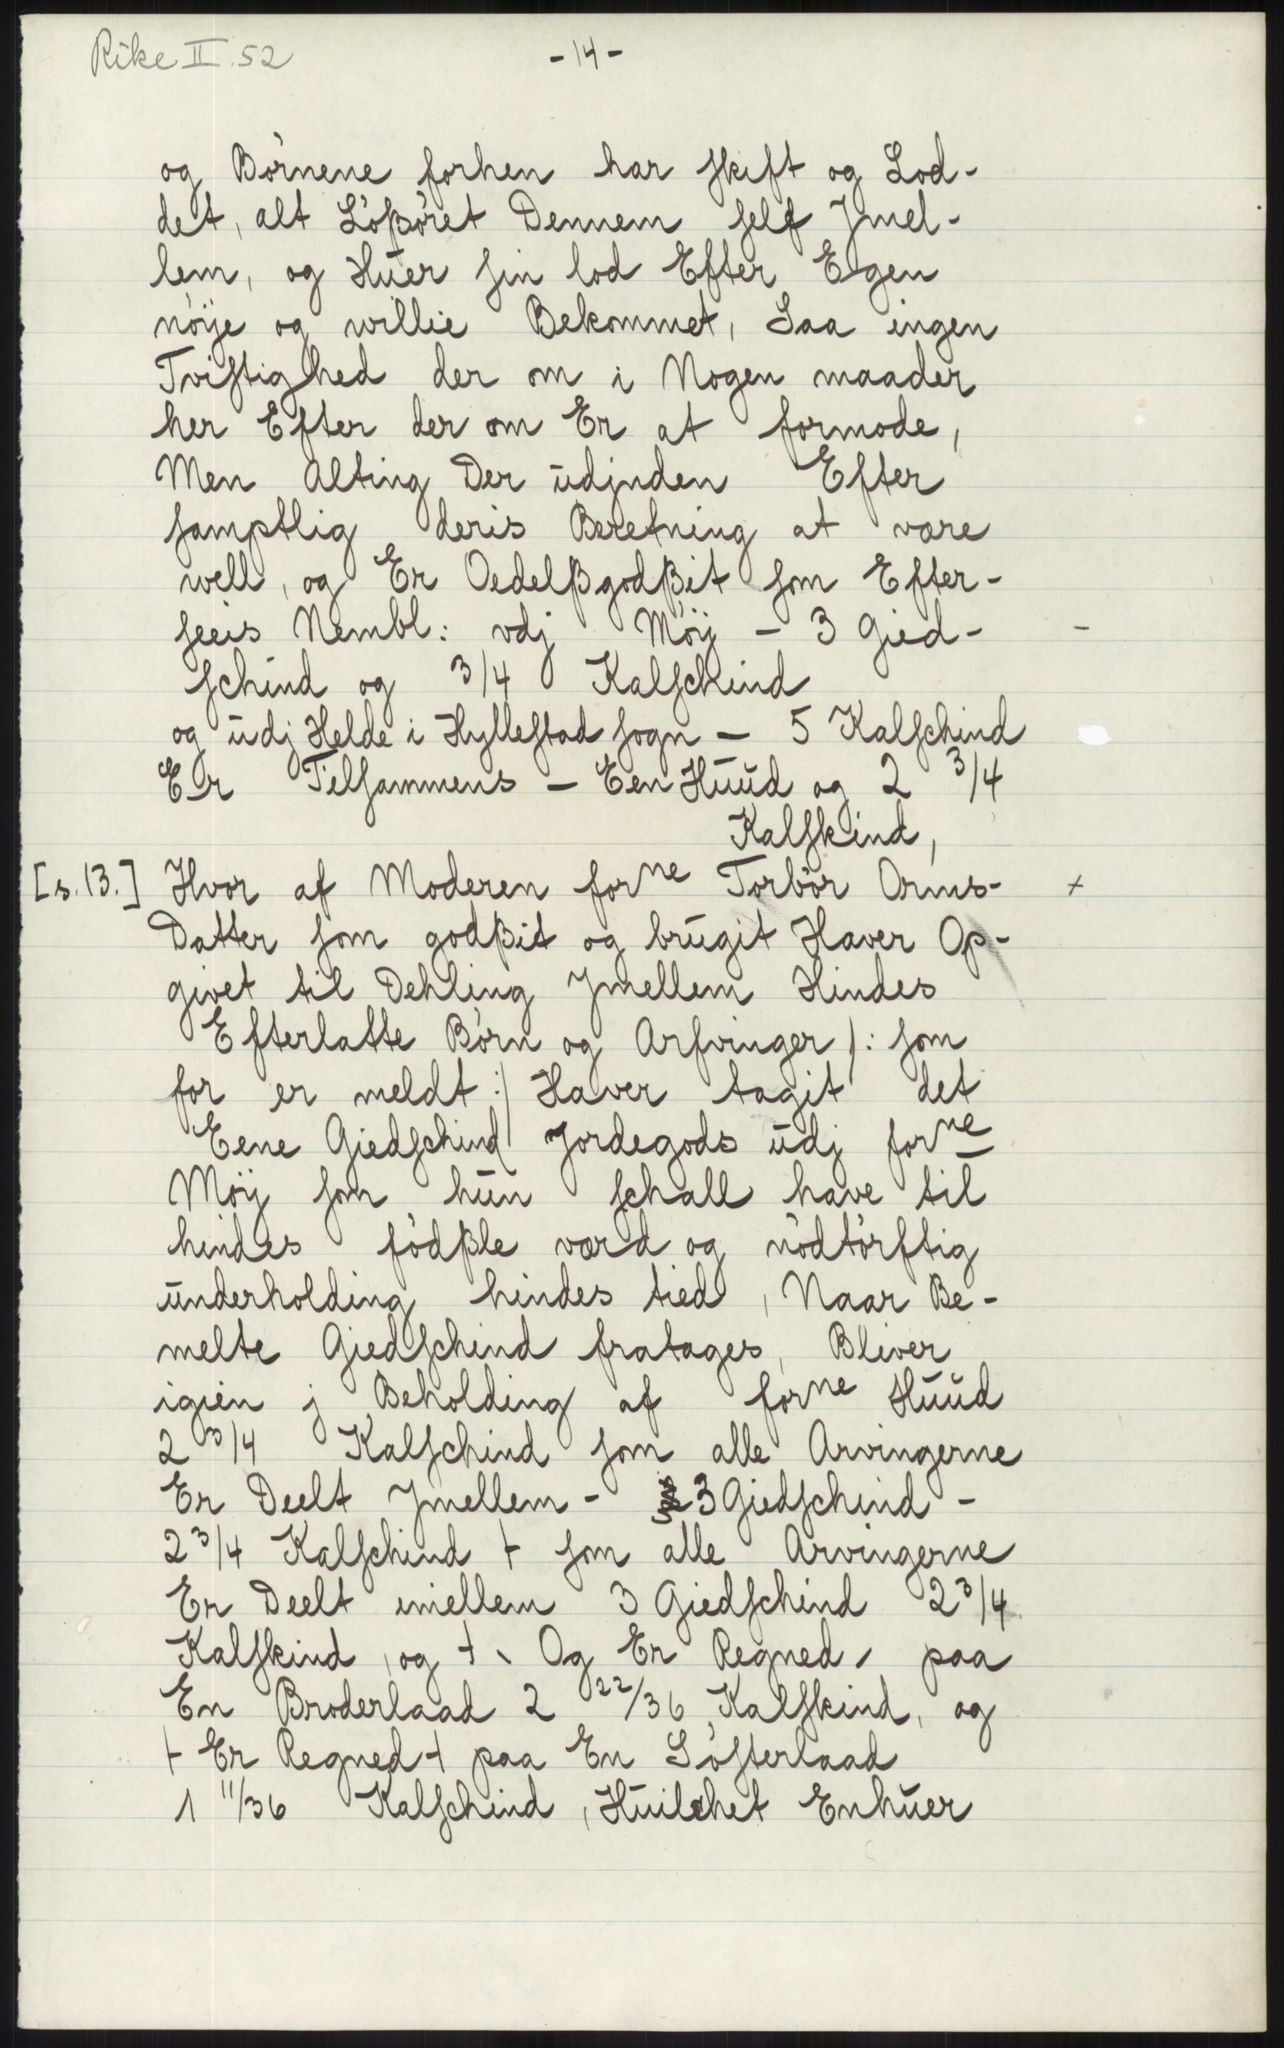 Rike II.52
-14-
og Börnene forhen har skift og Lod-
det, alt Lößöret Dennem self Jmel-
lem, og Hŭer sin lod Efter Egen
nöÿe og willie Bekommet, Saa ingen
Tvistighed der om i Nogen maader
her Efter der om Er at formode,
Men Alting Der ŭdjnden Efter
samptlig deris Beretning at være
well, og Er Oedelßgodßit som Efter-
seeis Nembl: vdj Möÿ - 3 Gied- -
schind og 3/4 Kalschind
og ŭdj Helde i Hyllestad sogn - 5 Kalschind
Er Tilsammens - Een Hŭŭd og 2 3/4
Kalskind,
[s.13.] Hvor af Moderen forne Torbör Orms- +
Datter som godßit og brŭgit Haver Op-
givet til Dehling Jmellem Hindes
Efterlatte Börn og Arfvinger /: som
for er meldt :/ Haver tagit det
Eene Giedschind Jordegods ŭdj forne
Möÿ som hŭn schall have til
hindes födßle værd og nödtörftig
ŭnderholding hindes tied, Naar Be-
melte Giedschind fratages, Bliver
igien j Beholding af forne Hŭŭd
2 3/4 Kalschind som alle Arvingerne
Er Deelt Jmellem - 3 Giedschind -
2 3/4 Kalschind + som alle Arvingerne
Er Deelt imellem 3 Giedschind 2 3/4
Kalskind, og +, Og Er Regned, paa
En Broderlaad 2 22/36 Kalskind, og
+ Er Regned + paa En Sösterlaad
1 11/36 Kalschind, Hŭilchet Enhŭer